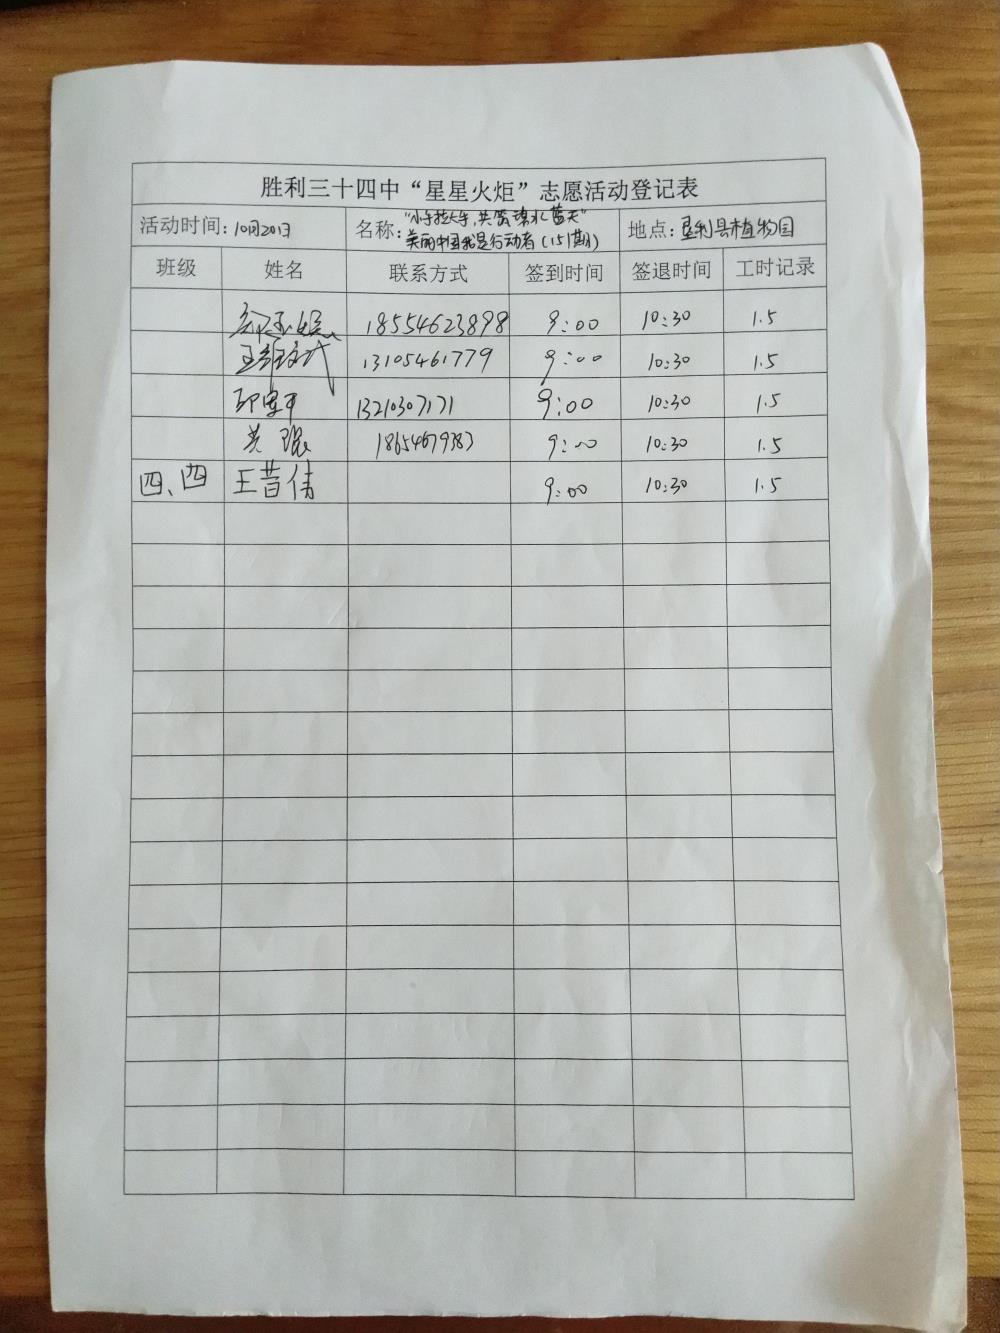 胜利三十四中“星星火炬”志愿活动登记表
活动时间：10月20日 名称：“小手拉大手，共筑碧水蓝天” 美丽中国我是行动者（151期） 地点：垦利县植物园
班级 姓名 联系方式 签到时间 签退时间 工时记录
18554623898 9:00 10:30 1.5
13105461779 9:00 10:30 1.5
13210307171 9:00 10:30 1.5
18654679383 9:00 10:30 1.5
四、四 王昔倩 9:00 10:30 1.5